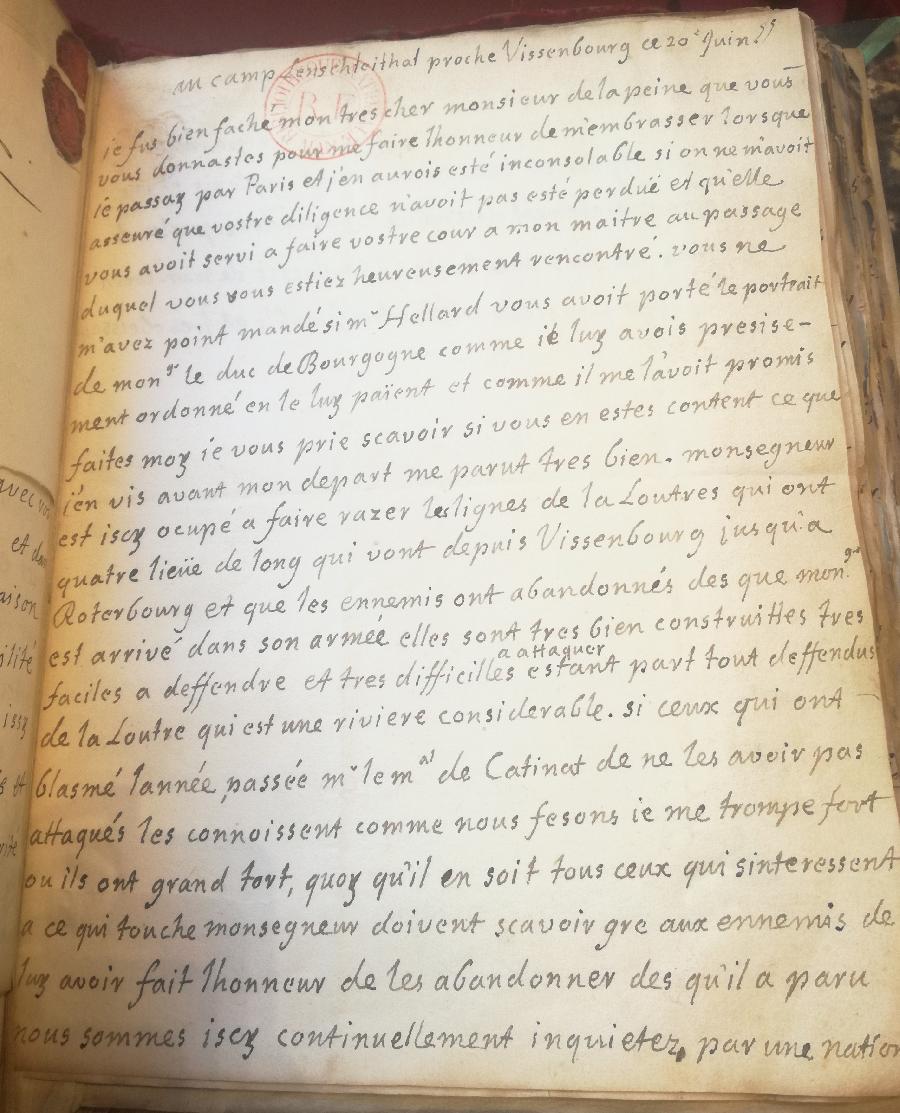 au camp Lenschleithal proche Vissenbourg ce 20e Juin
ie fus bien faché mon tres cher monsieur de la peine que vous
vous donnastes pour me faire lhonneur de m'embrasser lorsque
ie passay par Paris et j'en aurois esté inconsolable si on ne m'avoit
asseuré que vostre diligence n'avoit pas esté perduë et qu'elle
vous avoit servi a faire vostre cour a mon maitre au passage
duquel vous vous estiez heureusement rencontré. vous ne
m'avez point mandé si mr Hellard vous avoit porté le portrait
de mongr le duc de Bourgogne comme ie luy avois presise-
ment ordonné en le luy païent et comme il me l'avoit promis
faites moy ie vous prie scavoir si vous en estes content ce que
j'en vis avant mon depart me parut tres bien. monsegneur
est iscy ocupé a faire razer les lignes de la Loutres qui ont
quatre lieüe de long qui vont depuis Vissenbourg jusqu'a
Roterbourg et que les ennemis ont abandonnés des que mongr
est arrivé dans son armée elles sont tres bien construittes tres
faciles a deffendre et tres difficilles a attaquer estant part tout deffendus
de la Loutre qui est une riviere considerable. si ceux qui ont
blasmé lannée passée mr le mal de Catinat de ne les avoir pas
attaqués les connoissent comme nous fesons ie me trompe fort
ou ils ont grand tort, quoy qu'il en soit tous ceux qui sinteressent
a ce qui touche monsegneur doivent scavoir gre aux ennemis de
luy avoir fait lhonneur de les abandonner des qu'il a paru
nous sommes iscy continuellement inquietez, par une nation